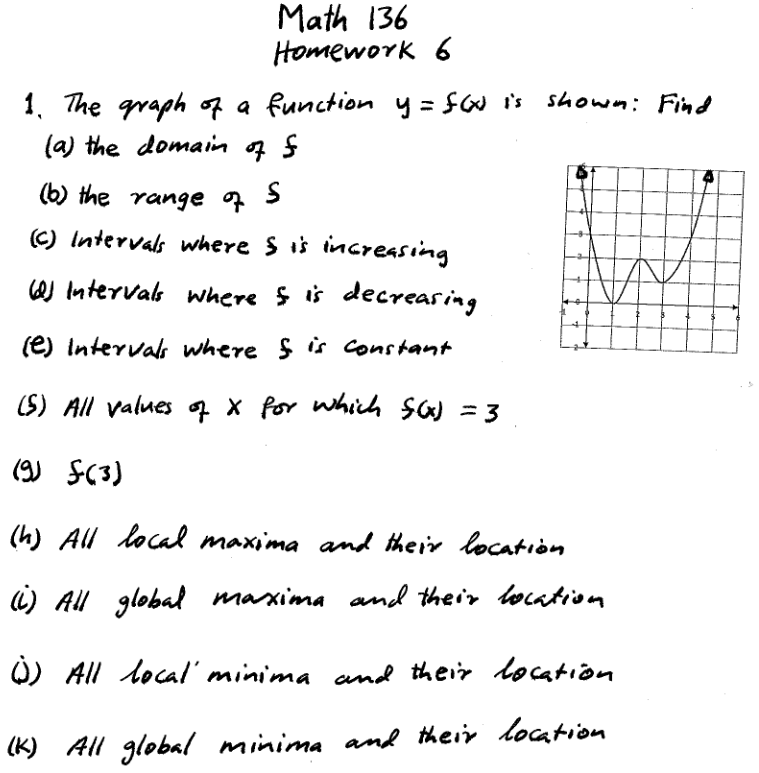 Math 136
Homework 6
1. The graph of a function y = f(x) is shown: Find
(a) the domain of f
(b) the range of f
(c) Intervals where f is increasing
(d) Intervals where f is decreasing
(e) Intervals where f is constant
(f) All values of x for which f(x) = 3
(g) f(3)
(h) All local maxima and their location
(i) All global maxima and their location
(j) All local minima and their location
(k) All global minima and their location